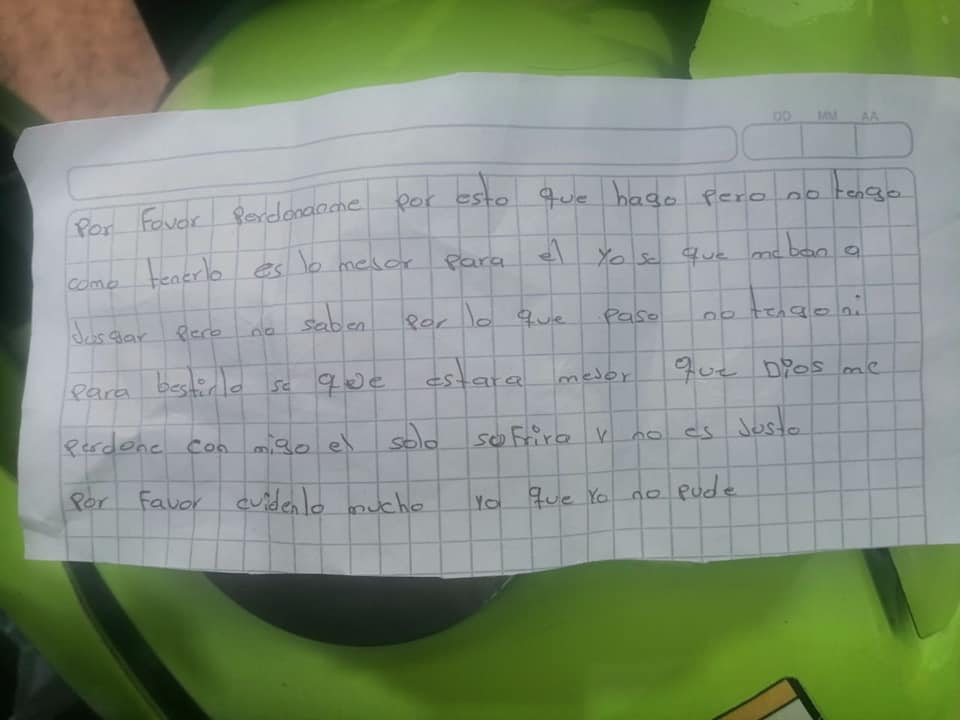 DD MM AA
Por Favor Perdonaome por esto que hago pero no tengo
como tenerlo es lo mejor para el Yo se que me ban a
Jusgar pero no saben por lo que paso no tengo ni
para bestirlo se que estara mejor que Dios me
perdone con migo el solo sufrira y no es Justo
por Favor cuidenlo mucho ya que Yo no pude